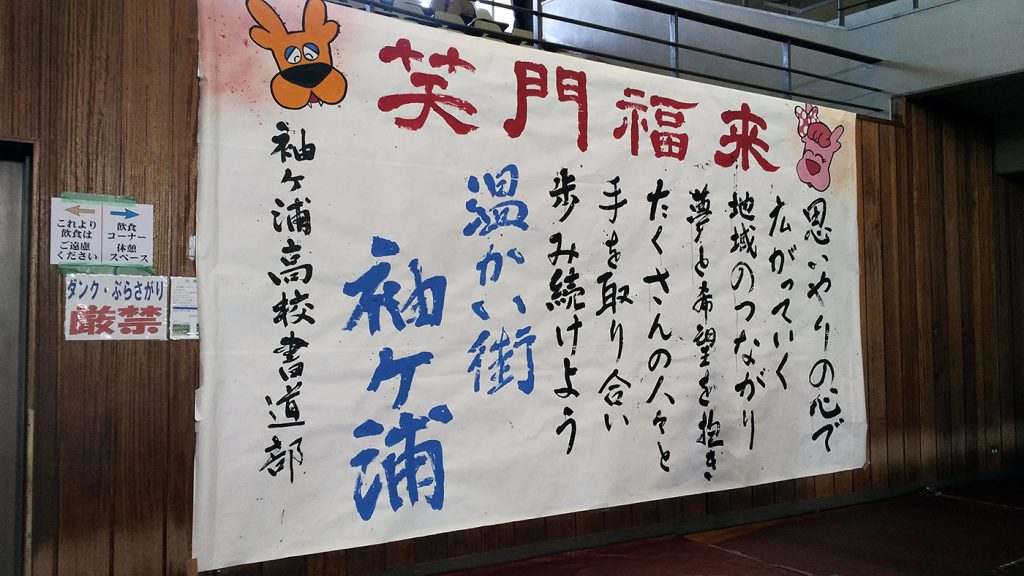 笑門福来
思いやりの心で
広がっていく
地域のつながり
夢と希望を抱き
たくさんの人々と
手を取り合い
歩み続けよう
温かい街
袖ヶ浦
袖ヶ浦高校書道部
これより
飲食は
ご遠慮
ください
飲食
コーナー
休憩
スペース
ダンク・ぶらさがり
厳禁